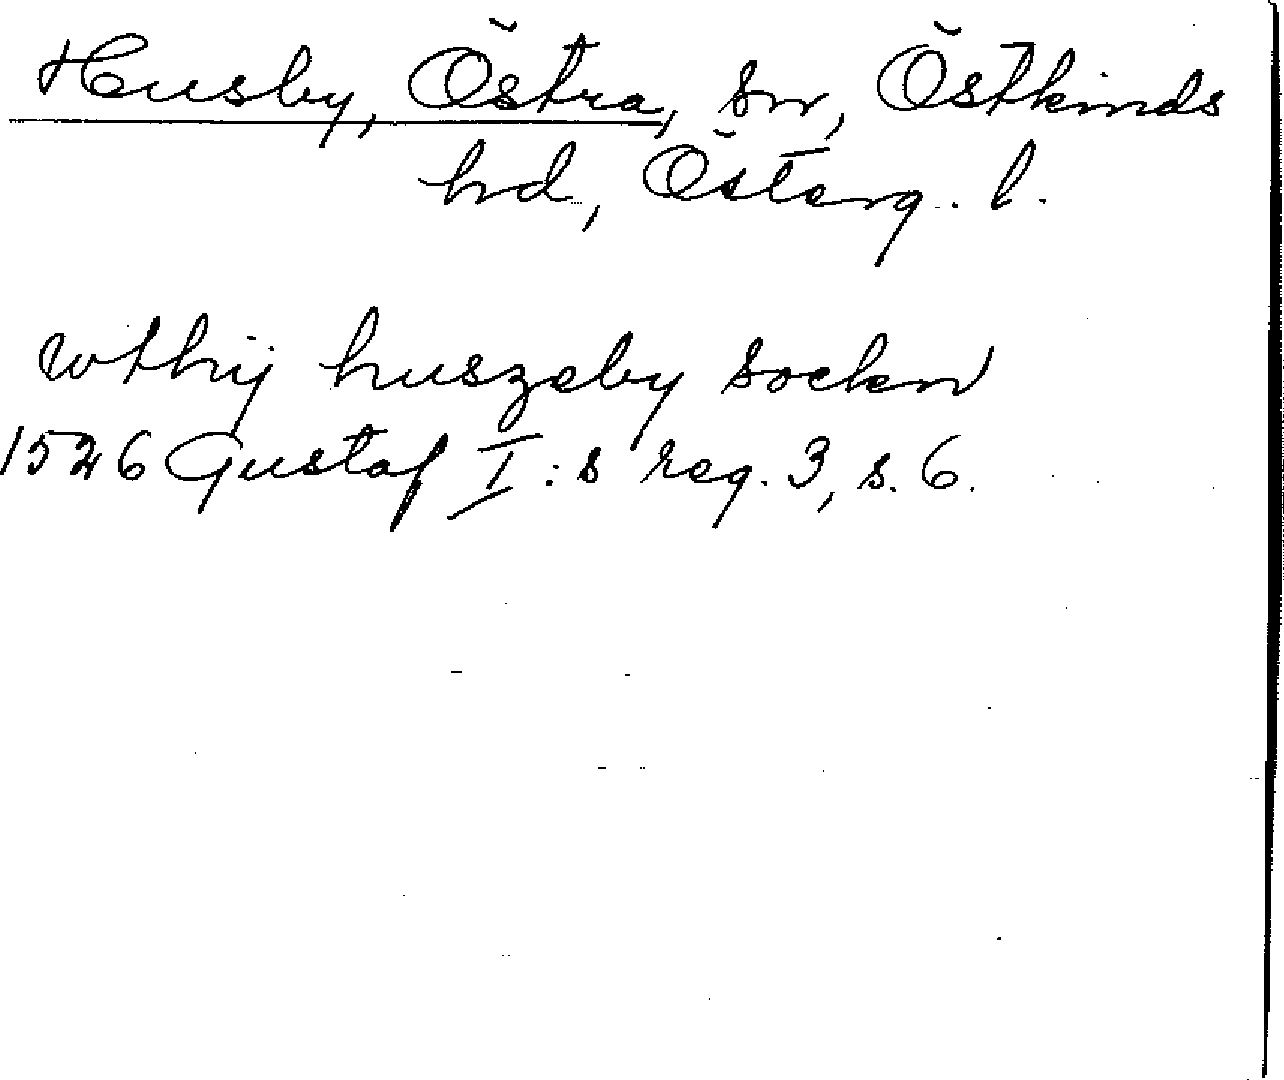 Husby, Östra, sn, Östkinds
hd, Österg. l.
wthij huszeby sockn
1526 Gustaf I:s reg. 3, s. 6.